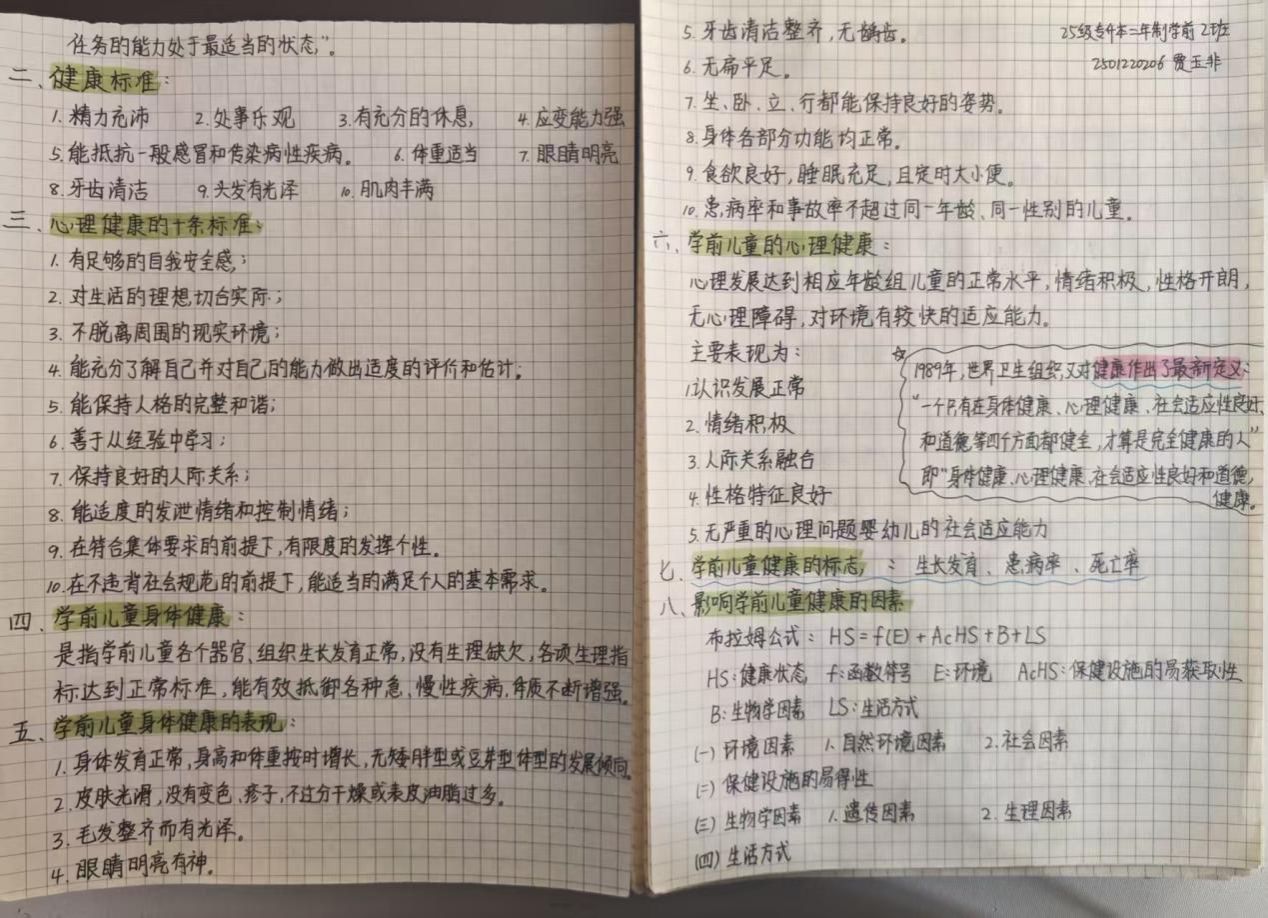 任务的能力处于最适当的状态"。
二、健康标准：
1. 精力充沛 2. 处事乐观 3. 有充分的休息, 4. 应变能力强
5. 能抵抗一般感冒和传染病性疾病。 6. 体重适当 7. 眼睛明亮
8. 牙齿清洁 9. 头发有光泽 10. 肌肉丰满
三、心理健康的十条标准：
1. 有足够的自我安全感；
2. 对生活的理想切合实际；
3. 不脱离周围的现实环境；
4. 能充分了解自己并对自己的能力做出适度的评价和估计；
5. 能保持人格的完整和谐；
6. 善于从经验中学习；
7. 保持良好的人际关系；
8. 能适度的发泄情绪和控制情绪；
9. 在符合集体要求的前提下，有限度的发挥个性。
10. 在不违背社会规范的前提下，能适当的满足个人的基本需求。
四、学前儿童身体健康：
是指学前儿童各个器官、组织生长发育正常，没有生理缺欠，各项生理指
标达到正常标准，能有效抵御各种急、慢性疾病，体质不断增强。
五、学前儿童身体健康的表现：
1. 身体发育正常，身高和体重按时增长，无矮胖型或豆芽型体型的发展倾向。
2. 皮肤光滑，没有变色、疹子，不过分干燥或表皮油脂过多。
3. 毛发整齐而有光泽。
4. 眼睛明亮有神。
5. 牙齿清洁整齐，无龋齿。
25级专升本二年制学前2班
6. 无扁平足。
2501220206 贾玉非
7. 坐、卧、立、行都能保持良好的姿势。
8. 身体各部分功能均正常。
9. 食欲良好，睡眠充足，且定时大小便。
10. 患病率和事故率不超过同一年龄、同一性别的儿童。
六、学前儿童的心理健康：
心理发展达到相应年龄组儿童的正常水平，情绪积极，性格开朗，
无心理障碍，对环境有较快的适应能力。
主要表现为：
1. 认识发展正常
2. 情绪积极
3. 人际关系融合
4. 性格特征良好
5. 无严重的心理问题婴幼儿的社会适应能力
☆1989年，世界卫生组织又对健康作出了最新定义：
"一个只有在身体健康、心理健康、社会适应性良好、
和道德等四个方面都健全，才算是完全健康的人"
即"身体健康、心理健康、社会适应性良好和道德
健康。
七、学前儿童健康的标志：生长发育、患病率、死亡率
八、影响学前儿童健康的因素
布拉姆公式：HS=f(E)+AcHS+B+LS
HS：健康状态 f：函数符号 E：环境 AcHS：保健设施的易获取性
B：生物学因素 LS：生活方式
(一) 环境因素 1. 自然环境因素 2. 社会因素
(二) 保健设施的易得性
(三) 生物学因素 1. 遗传因素 2. 生理因素
(四) 生活方式